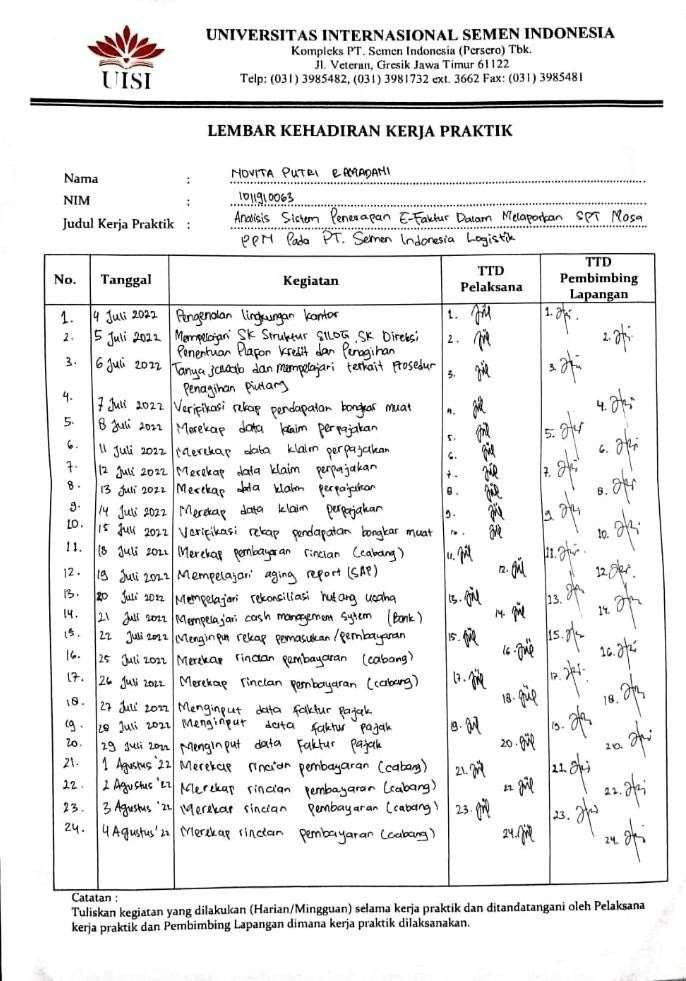 UISI
UNIVERSITAS INTERNASIONAL SEMEN INDONESIA
Kompleks PT. Semen Indonesia (Persero) Tbk.
Jl. Veteran, Gresik Jawa Timur 61122
Telp: (031) 3985482, (031) 3981732 ext. 3662 Fax: (031) 3985481
LEMBAR KEHADIRAN KERJA PRAKTIK
Nama : NOVITA PUTRI RAMADANI
NIM : 1011910063
Judul Kerja Praktik : Analisis Sistem Penerapan E-Faktur Dalam Melaporkan SPT Masa
PPN Pada PT. Semen Indonesia Logistik
No. Tanggal Kegiatan TTD Pelaksana TTD Pembimbing Lapangan
1. 4 Juli 2022 Pengenalan lingkungan kantor 1. 1.
2. 5 Juli 2022 Mempelajari SK Struktur SILOG, SK Direksi 2. 2.
Penentuan Plafon Kredit dan Penagihan
3. 6 Juli 2022 Tanya jawab dan mempelajari terkait Prosedur 3. 3.
Penagihan Piutang
4. 7 Juli 2022 Verifikasi rekap pendapatan bongkar muat 4. 4.
5. 8 Juli 2022 Merekap data klaim perpajakan 5. 5.
6. 11 Juli 2022 Merekap data klaim perpajakan 6. 6.
7. 12 Juli 2022 Merekap data klaim perpajakan 7. 7.
8. 13 Juli 2022 Merekap data klaim perpajakan 8. 8.
9. 14 Juli 2022 Merekap data klaim perpajakan 9. 9.
10. 15 Juli 2022 Verifikasi rekap pendapatan bongkar muat 10. 10.
11. 18 Juli 2022 Merekap pembayaran rincian (cabang) 11. 11.
12. 19 Juli 2022 Mempelajari aging report (SAP) 12. 12.
13. 20 Juli 2022 Mempelajari rekonsiliasi hutang usaha 13. 13.
14. 21 Juli 2022 Mempelajari cash management system (Bank) 14. 14.
15. 22 Juli 2022 Menginput rekap pemasukan/pembayaran 15. 15.
16. 25 Juli 2022 Merekap rincian pembayaran (cabang) 16. 16.
17. 26 Juli 2022 Merekap rincian pembayaran (cabang) 17. 17.
18. 27 Juli 2022 Menginput data faktur pajak 18. 18.
19. 28 Juli 2022 Menginput data faktur pajak 19. 19.
20. 29 Juli 2022 Menginput data faktur pajak 20. 20.
21. 1 Agustus '22 Merekap rincian pembayaran (cabang) 21. 21.
22. 2 Agustus '22 Merekap rincian pembayaran (cabang) 22. 22.
23. 3 Agustus '22 Merekap rincian pembayaran (cabang) 23. 23.
24. 4 Agustus '22 Merekap rincian pembayaran (cabang) 24. 24.
Catatan :
Tuliskan kegiatan yang dilakukan (Harian/Mingguan) selama kerja praktik dan ditandatangani oleh Pelaksana
kerja praktik dan Pembimbing Lapangan dimana kerja praktik dilaksanakan.